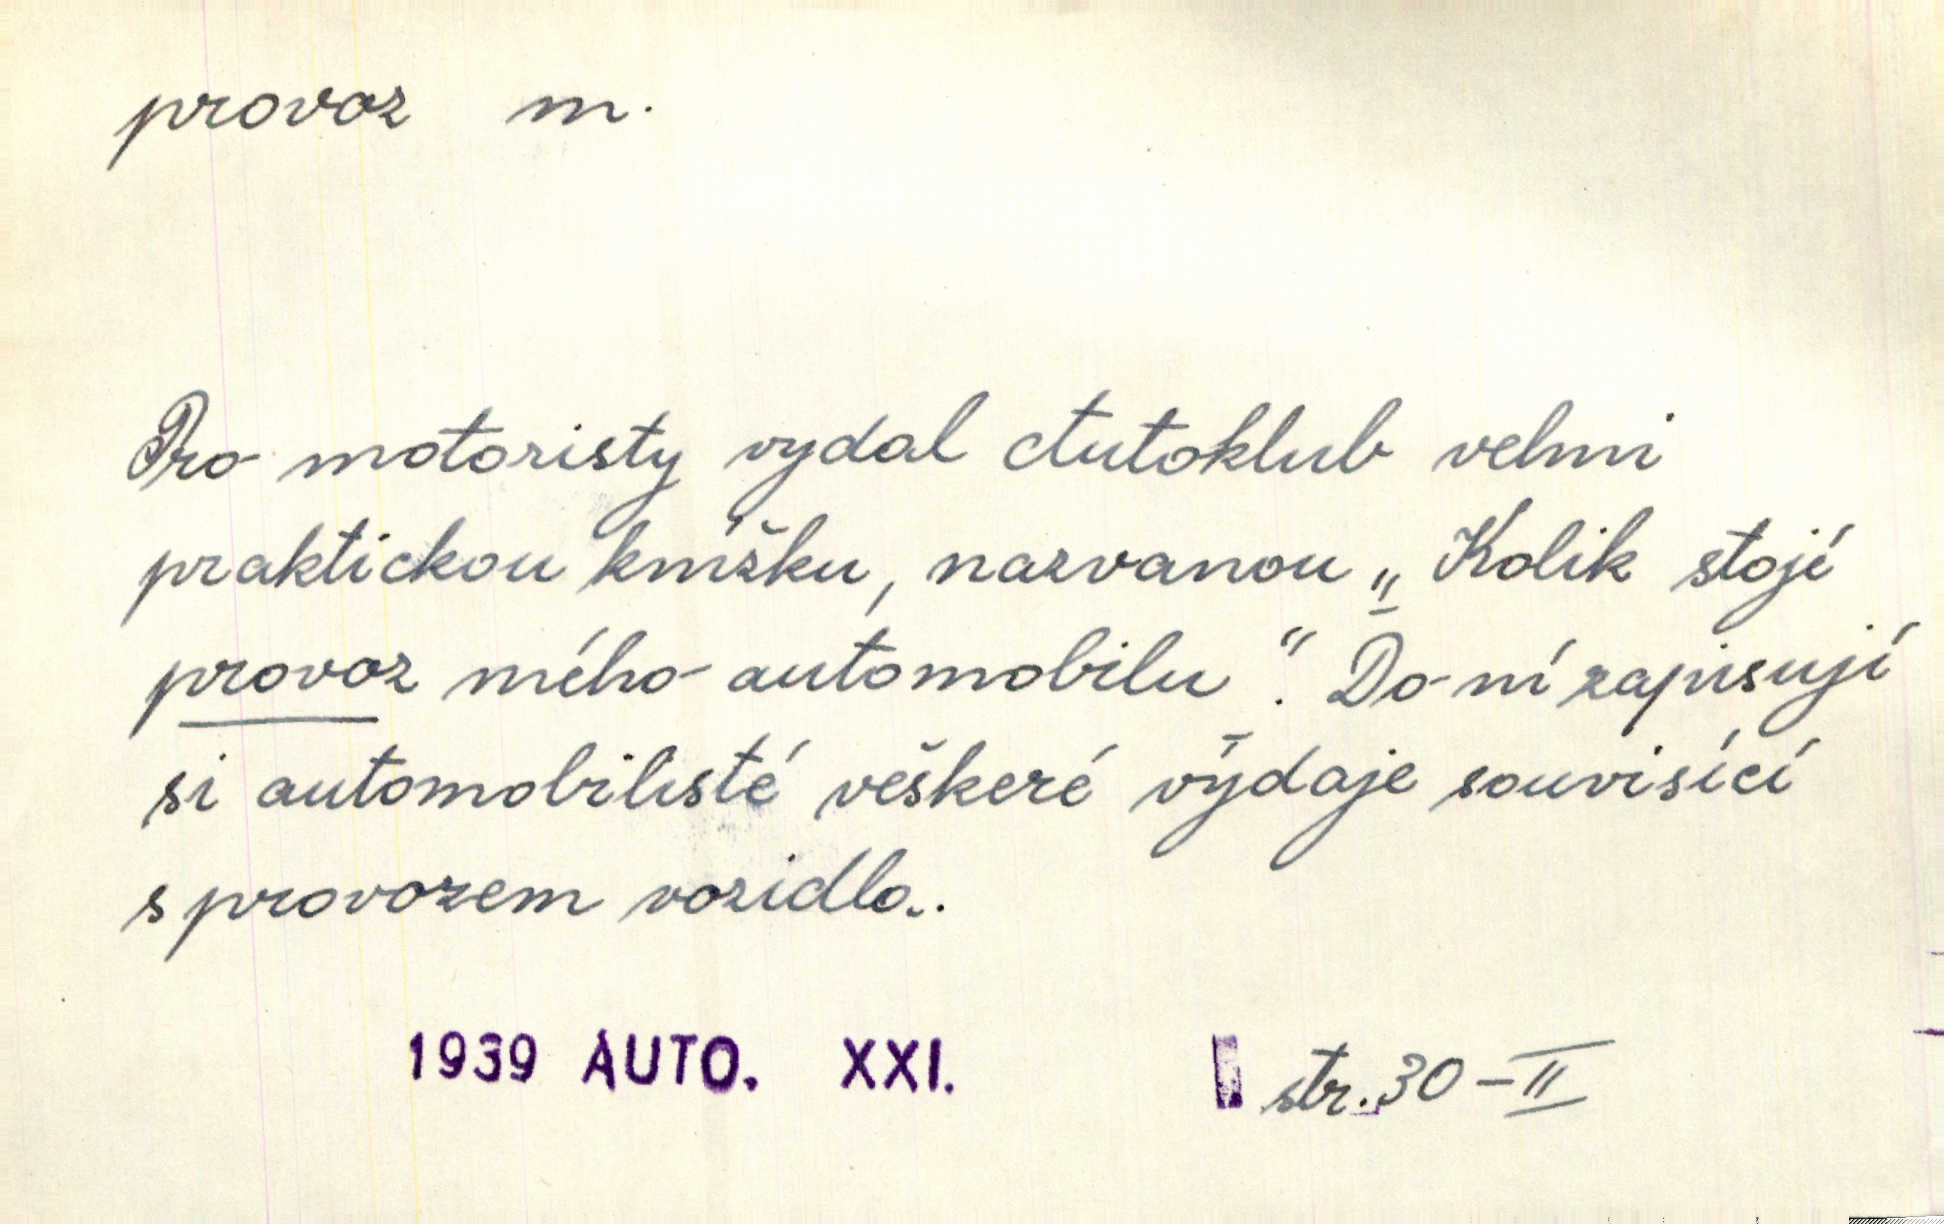 provoz m.
Pro motoristy vydal Autoklub velmi
praktickou knížku, nazvanou „Kolik stojí
provoz mého automobilu“. Do ní zapisují
si automobilisté veškeré výdaje souvisící
s provozem vozidla.
1939 AUTO. XXI. str. 30 - II